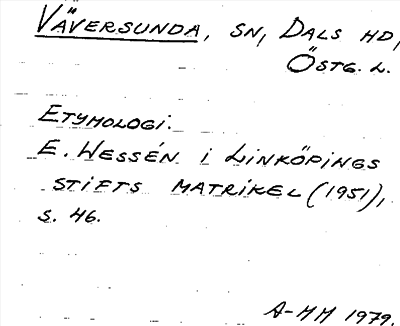 VÄVERSUNDA, SN, DALS HD,
ÖSTG. L.
ETYMOLOGI.
E. WESSÉN I LINKÖPINGS
STIFTS MATRIKEL (1951),
S. 46.
A-MM 1979.